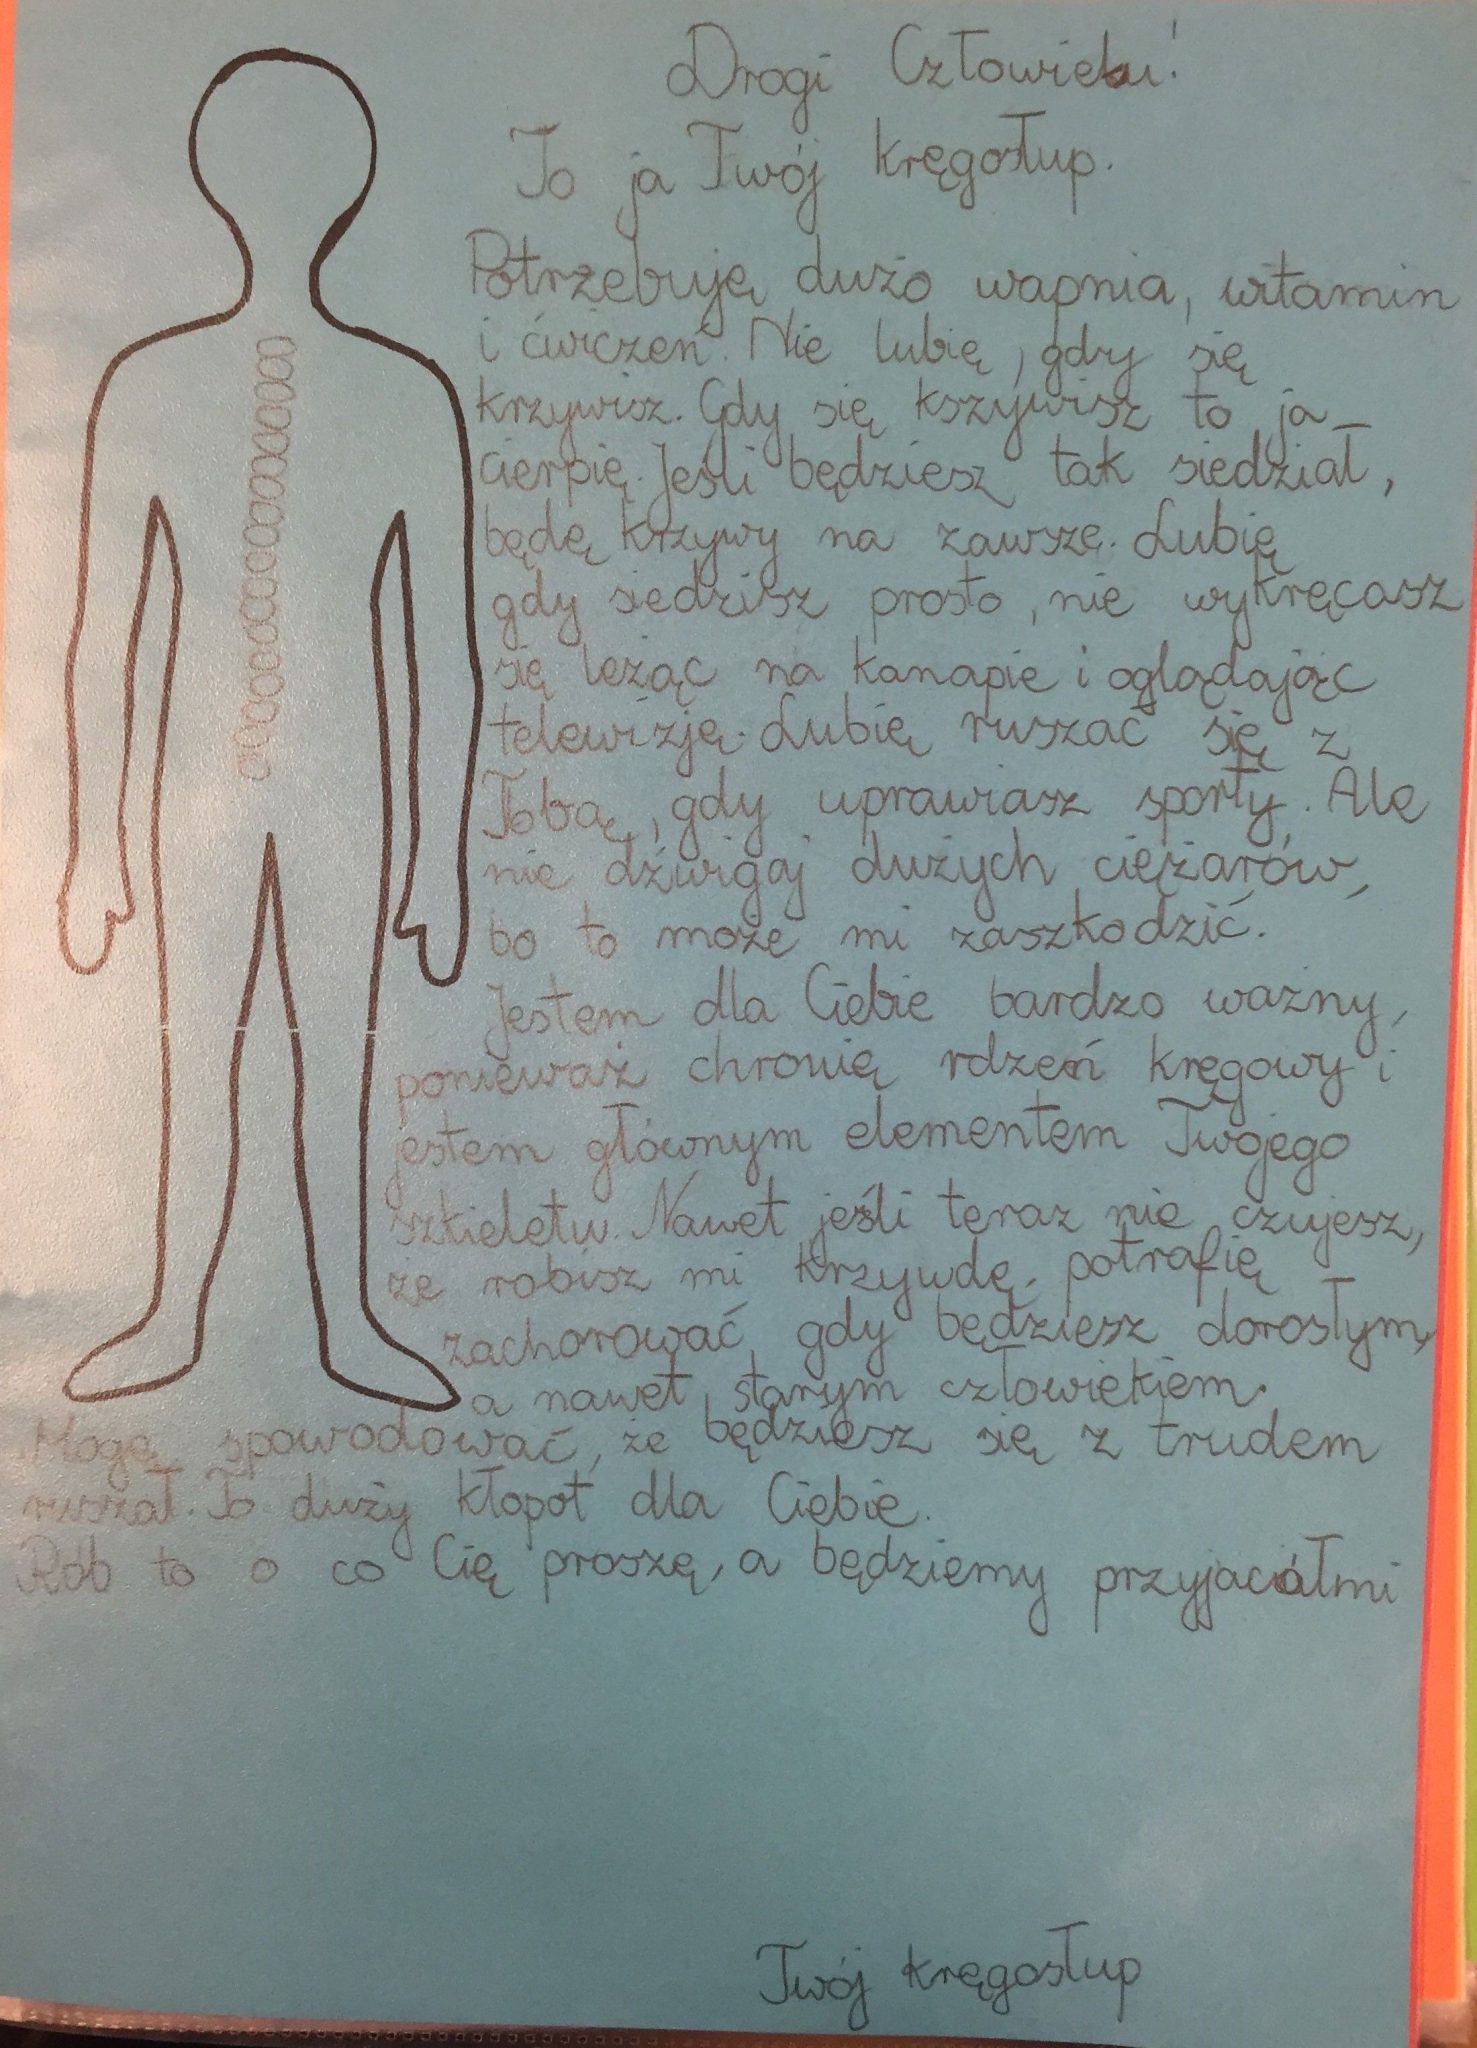 Drogi Człowieku!
To ja Twój kręgosłup.
Potrzebuję dużo wapnia, witamin
i ćwiczeń. Nie lubię, gdy się
krzywisz. Gdy się kszywisz to ja
cierpię. Jeśli będziesz tak siedział,
będę krzywy na zawsze. Lubię
gdy siedzisz prosto, nie wykręcasz
się leżąc na kanapie i oglądając
telewizję. Lubię ruszać się z
Tobą, gdy uprawiasz sporty. Ale
nie dźwigaj dużych ciężarów,
bo to może mi zaszkodzić.
Jestem dla Ciebie bardzo ważny,
ponieważ chronię rdzeń kręgowy i
jestem głównym elementem Twojego
szkieletu. Nawet jeśli teraz nie czujesz,
że robisz mi krzywdę, potrafię
zachorować, gdy będziesz dorosłym,
a nawet starym człowiekiem.
Mogę spowodować, że będziesz się z trudem
ruszał. To duży kłopot dla Ciebie.
Rób to o co Cię proszę, a będziemy przyjaciółmi
Twój kręgosłup